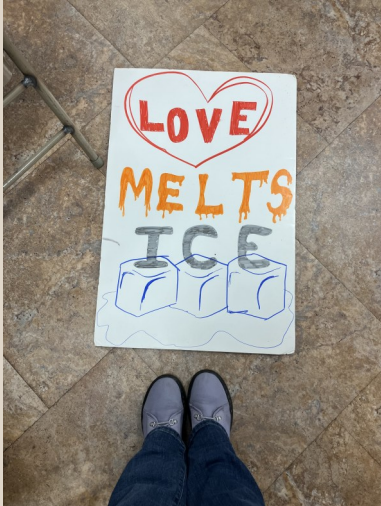 LOVE
MELTS
ICE